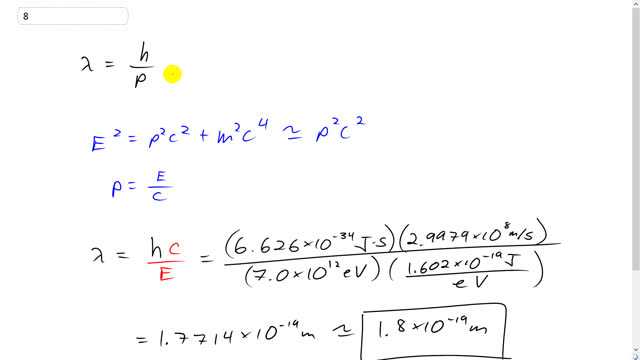 8
λ = h/p
E² = p²c² + m²c⁴ ≃ p²c²
p = E/c
λ = hc/E = (6.626×10⁻³⁴ J·s)(2.9979×10⁸ m/s) / (7.0×10¹² eV)(1.602×10⁻¹⁹ J / eV)
= 1.7714×10⁻¹⁹ m ≃ 1.8×10⁻¹⁹ m